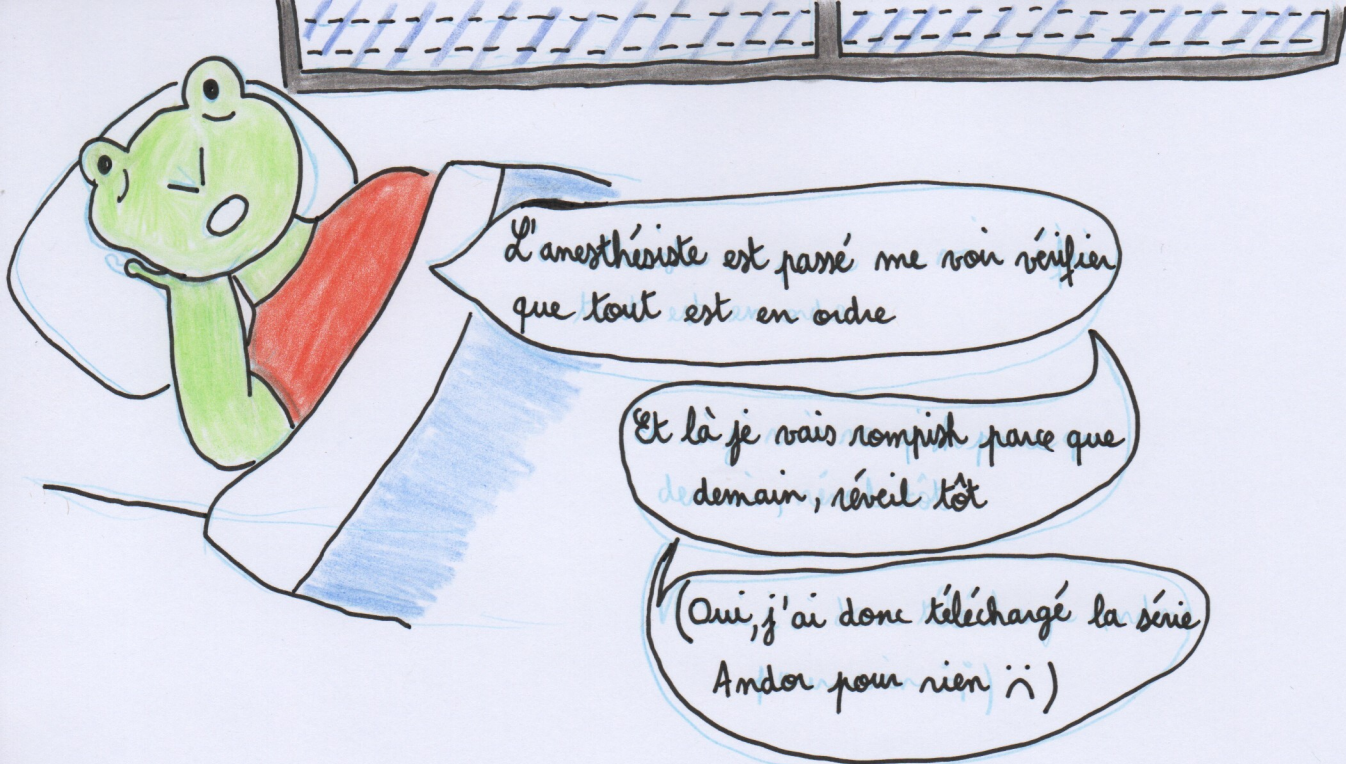 L'anesthésiste est passé me voir vérifier
que tout est en ordre
Et là je vais rompish parce que
demain, réveil tôt
(Oui, j'ai donc téléchargé la série
Andor pour rien :()